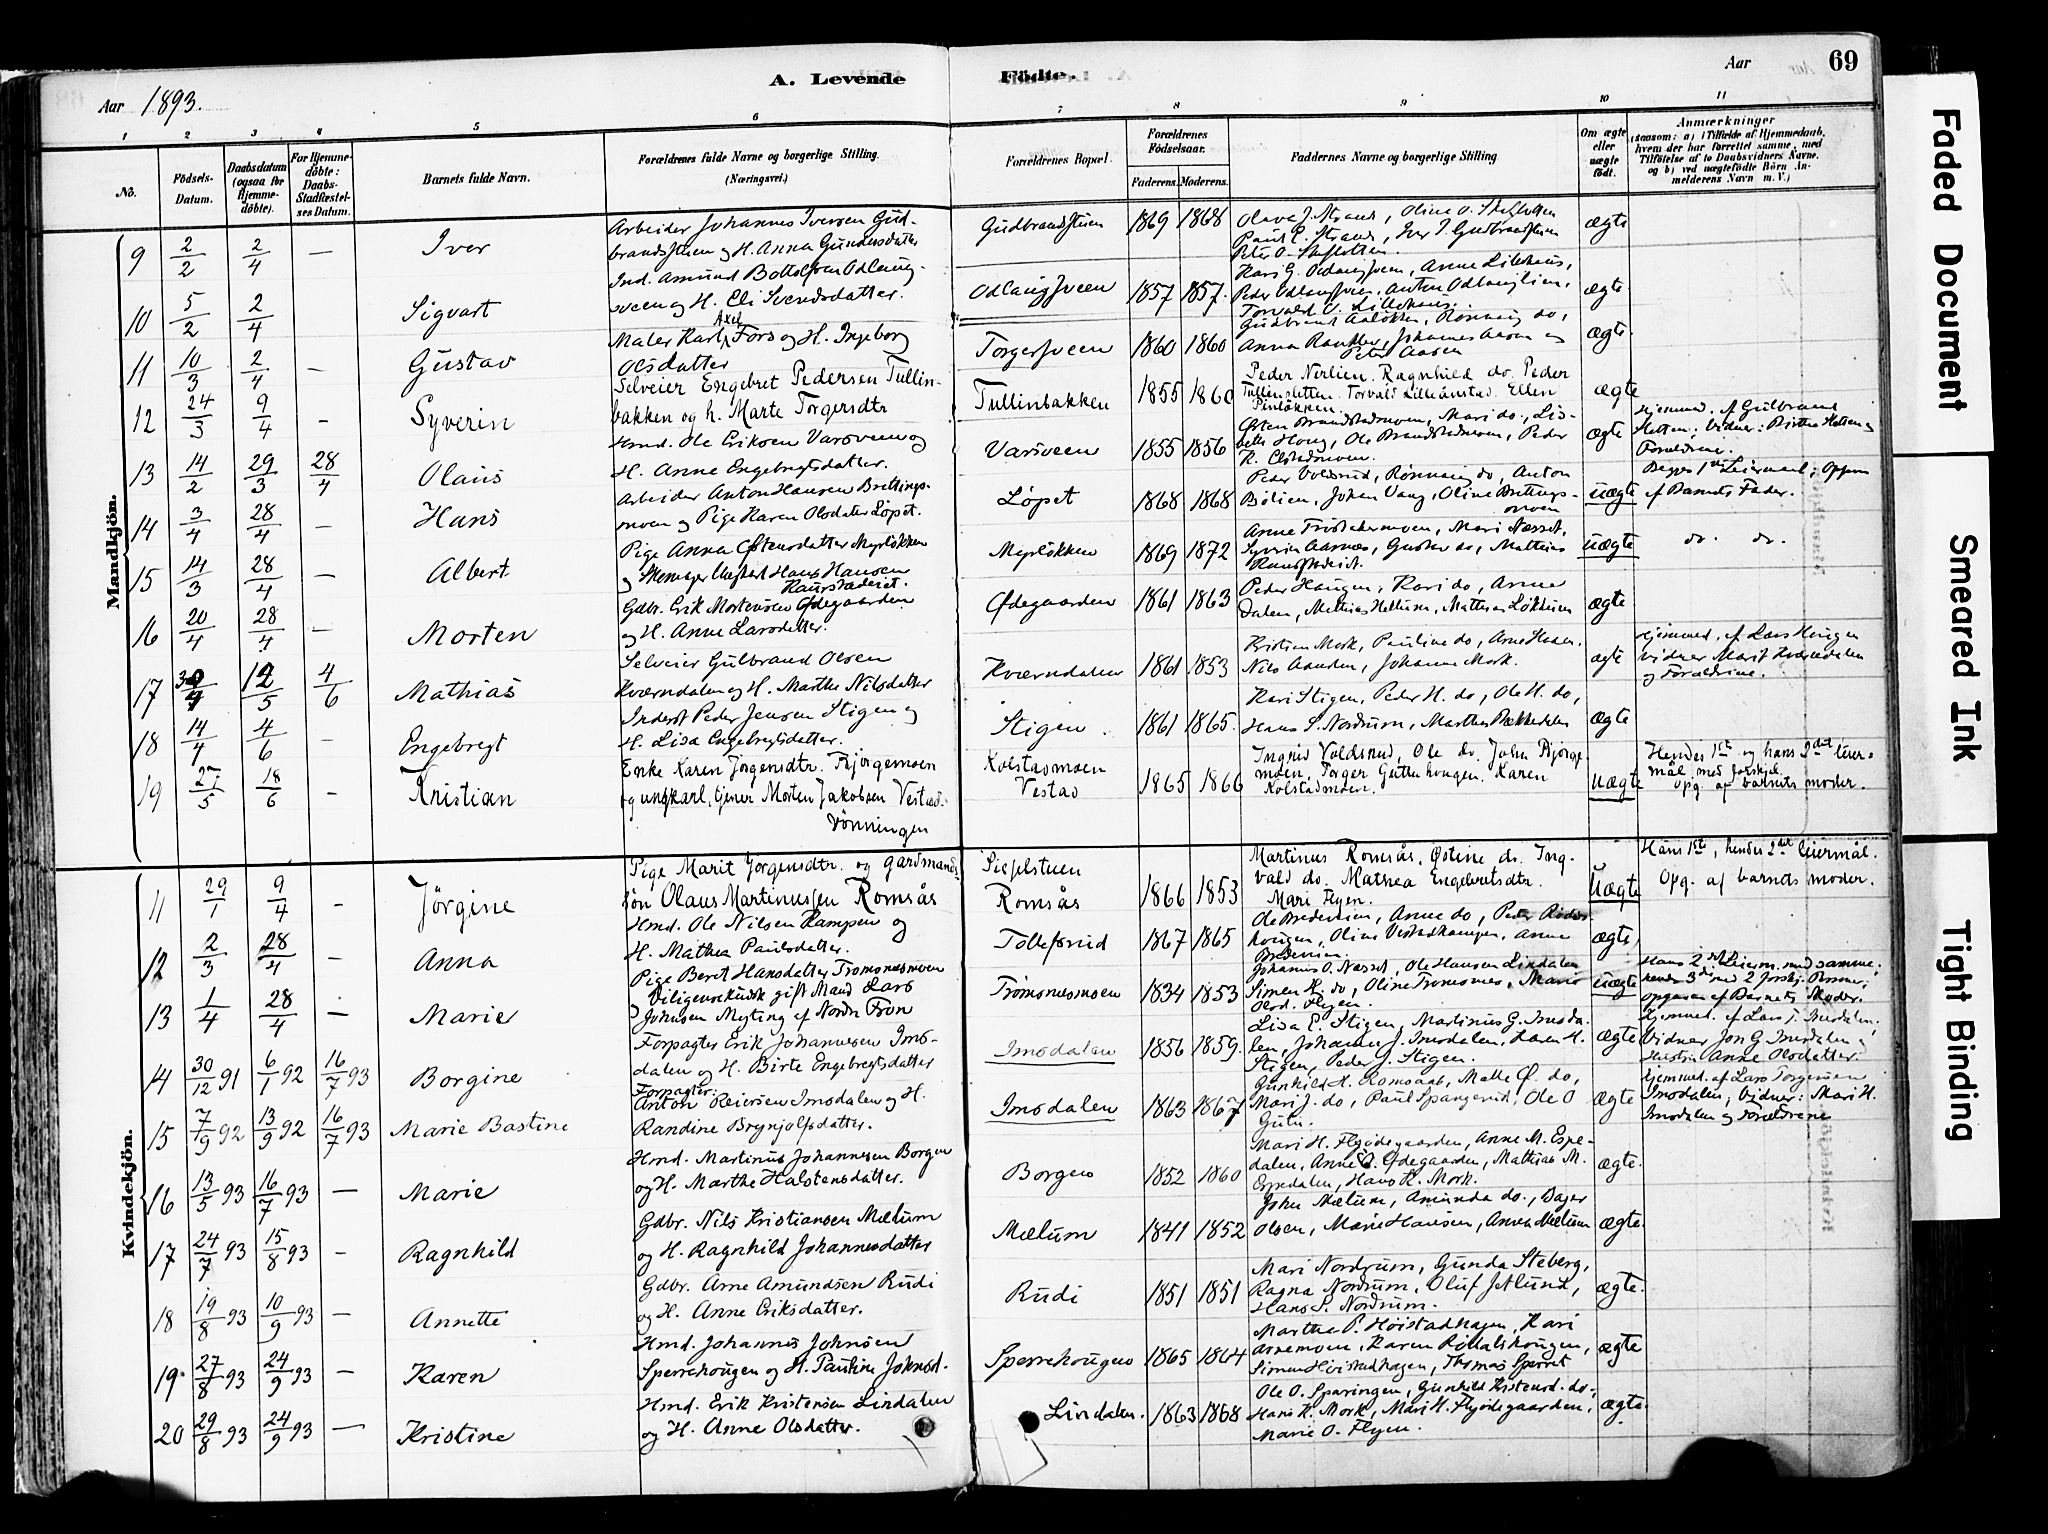 69
A. Levende Födte.
Aar 1893.
Aar
1 2 3 4 5 6 7 8 9 10 11
No.
Födsels-Datum.
Daabsdatum (ogsaa for Hjemmedöbte).
For Hjemmedöbte: Daabs-Stadfæstelses Datum.
Barnets fulde Navn.
Forældrenes fulde Navne og borgerlige Stilling. (Næringsvei.)
Forældrenes Bopæl.
Forældrenes Födselsaar.
Faderens. Moderens.
Faddernes Navne og borgerlige Stilling
Om ægte eller uægte födt.
Anmærkninger
(saasom: a) i Tilfælde af Hjemmedaab, hvem der har forrettet samme, med Tilföielse af to Daabsvidners Navne, og b) ved uægtefödte Börn Anmelderens Navn m. V.)
Mandkjön.
9 2/2 2/4 — Iver
Arbeider Johannes Iversen Gud-
brandsstuen og H. Anna Gundersdatter
Gudbrandsstuen 1869 1868
Olava J. Strand, Oline O.
Paul E. Strand, Iver I. Gudbrandstuen
ægte
10 5/2 2/4 Sigvart
Ind. Amund Bottolfsen Odlaug-
sveen og H. Eli Svendsdatter.
Odlaugsveen 1857 1857.
Kari G. Odlaugsveen, Anne Lillehaus,
Peder Odlaugsveen, Anton Odlauglien,
Torvald O. Lillehaus.
ægte
11 10/3 2/4 - Gustav
Maler Karl Axel Fors og H. Ingeborg
Olsdatter
Torgersveen 1860 1860
Gudbrand Aaløkken, Rønnaug do,
Anna Johannes Aasen og
Peter Aasen
ægte.
12 24/3 9/4 - Syverin
Selveier Engebret Pedersen Tullin-
bakken og h. Marte Torgersdtr
Tullinbakken 1855 1860
Peder Nerlien. Ragnhild do. Peder
Tullinsletten. Torvald Ellen
Pinløkken.
ægte
13 14/2 29/3 28/4 Olaus
Hmd. Ole Eriksen Varsveen og
H. Anne Engebregtsdatter.
Varsveen 1855 1856
Østen Brandstadmoen, Mari do., Lis-
beth Houg, Ole Brandstadmoen, Peder
ægte
Hjemmed. af Gulbrand
Hetten; Vidner: Birthe Hetten og
Forældrene.
14 3/4 28/4 - Hans
Arbeider Anton Hansen Brettings-
moen og Pige Karen Olsdatter Løpet.
Løpet 1868 1868
Peder Voldsrud, Rønnaug do, Anton
Bølien, Johan Vang, Oline Brettings-
moen
uægte
Begges 1ste Leiermaal; Opgiven
af Barnets Fader.
15 14/3 28/4 — Albert
Pige Anna Østensdatter Myrløkken
og Skomager Ungkarl Hans Hansen
Kaurstaderet.
Myrløkken 1869 1872
Anne Mari Næsset,
Syverin Aarnæs, Gustav do, Mathias
uægte
do. do.
16 20/4 28/4 - Morten
Gdbr. Erik Mortensen Ødegaarden
og H. Anne Larsdatter.
Ødegaarden 1861 1863
Peder Haugen, Kari do, Anne
Dalen, Mathias Hellum, Mathias Løkkum
ægte
17 30/4 12/5 4/6 Mathias
Selveier Gulbrand Olsen
Kværndalen og H. Marthe Nilsdatter
Kværndalen 1861 1853
Kristian Mork, Pauline do, Arne Hauen.
Nils Aanden, Johanne Mork.
ægte
Hjemmed. af Lars Haugen
vidner Marit Kværndalen
og Forældrene.
18 14/4 4/6 - Engebregt
Inderst Peder Jensen Stigen og
H. Lisa Engebregtsdatter.
Stigen. 1861 1865.
Kari Stigen, Peder H. do, Ole H. do,
Hans S. Nordrum, Marthe Bækkedalen
ægte
19 27/5 18/6 - Kristian
Enke Karen Jørgensdtr. Bjørgemoen
og ungkarl, tjener Morten Jakobsen Vestad-
vønningen
Kolstadmoen
Vestad 1865 1866
Ingrid Voldsrud, Ole do. John Bjørge-
moen, Torger Gutterhougen. Karen
Kolstadmoen.
uægte
Hendes 1ste og hans 2det leier-
mål med forskjel.
Opg. af barnets moder.
Kvindekjön.
11 29/1 9/4 - Jörgine
Pige Marit Jörgensdtr. og gårdmands-
søn Olaus Martinussen Romsås
Sigfelstuen
Romsås 1866 1853
Martinus Romsås, Østine do. Ing-
vald do. Mathea Engebretsdtr.
Mari Flyen.
Uægte
Hans 1ste, hendes 2det leiermål.
Opg. af barnets moder.
12 2/3 28/4 - Anna
Hmd. Ole Nilsen Kampen og
H. Mathea Paulsdatter.
Tollefsrud 1867 1865
Ole Bredevien, Anne do, Peder
hougen, Oline Vestadkampen, Anne
Bredevien.
ægte
13 1/4 28/4 — Marie
Pige Beret Hansdatter Tromsnesmoen
og Johnsen Myting af Nordre Fron
Trømsnesmoen 1834 1853
Johannes O. Næsset, Ole Hansen Lindalen
Simen H. do, Oline Tromsnes, Marie
Olsd. Flyen.
uægte
Hans 2det Leierm. med samme,
hendes 3die med 2 forskj. Personer,
opgiven af Barnets Moder.
14 30/12 91 6/1 92 16/7 93 Borgine
Forpagter Erik Johannesen Ims-
dalen og H. Birte Engebregtsdatter
Imsdalen 1856 1859.
Lisa E. Stigen, Martinus G. Imsda-
len, Johannes J. Imsdalen, Karen H.
Stigen, Peder J. Stigen.
ægte
Hjemmed. af Lars T. Imsdalen;
Vidner Jon G. Imsdalen og
Hustru Anne Olsdatter.
15 7/9 92 13/9 92 16/7 93 Marie Bastine
Forpagter.
Anton Reiersen Imsdalen og H.
Randine Brynjolfsdatter.
Imsdalen 1863 1867
Gunhild H. Romsaas, Mathe Ø. do,
Mari J. do, Paul Spangrud, Ole O
ægte
Hjemmed. af Lars Torgersen
Imsdalen, Vidner: Mari H.
Imsdalen og Forældrene
16 13/5 93 16/7 93 — Marie
Hmd. Martinus Johannesen Borgen
og H. Marthe Halstensdatter.
Borgen 1852 1860
Mari H. Flyødegaarden, Anne M. Espe-
dalen, Anne O. Ødegaarden, Mathias M.
Espedalen, Hans K. Mork.
ægte.
17 24/7 93 15/8 93 - Ragnhild
Gdbr. Nils Kristiansen Mælum
og H. Ragnhild Johannesdatter
Mælum 1841 1852
John Mælum, Amunda do., Dager
Olsen, Marie Hansen, Anna Mælum
ægte.
18 19/8 93 10/9 93 — Annette
Gdbr. Arne Amundsen Rudi
og H. Anne Eriksdatter.
Rudi 1851 1851
Mari Nordrum, Gunda Steberg,
Ragna Nordrum, Oluf Jetlund,
Hans S. Nordrum.
ægte.
19. 27/8 93 24/9 93 — Karen
Hmd. Johannes Johnsen
Sperrehougen og H. Pauline Johnsd.
Sperrehougen 1865 1864
Marthe P. Høistadhagen, Kari
Arnemoen, Karen
Simen Høistadhagen, Thomas Sperret
ægte
20 29/8 93 24/9 93 — Kristine
Hmd. Erik Kristensen Lindalen
og H. Anne Olsdatter.
Lindalen. 1863 1868
Ole O. Sparingen, Gunhild Kristensd. do.,
Hans K. Mork, Mari H. Flyødegaarden,
Marie O. Flyen.
ægte.
Faded Document
Smeared Ink
Tight Binding